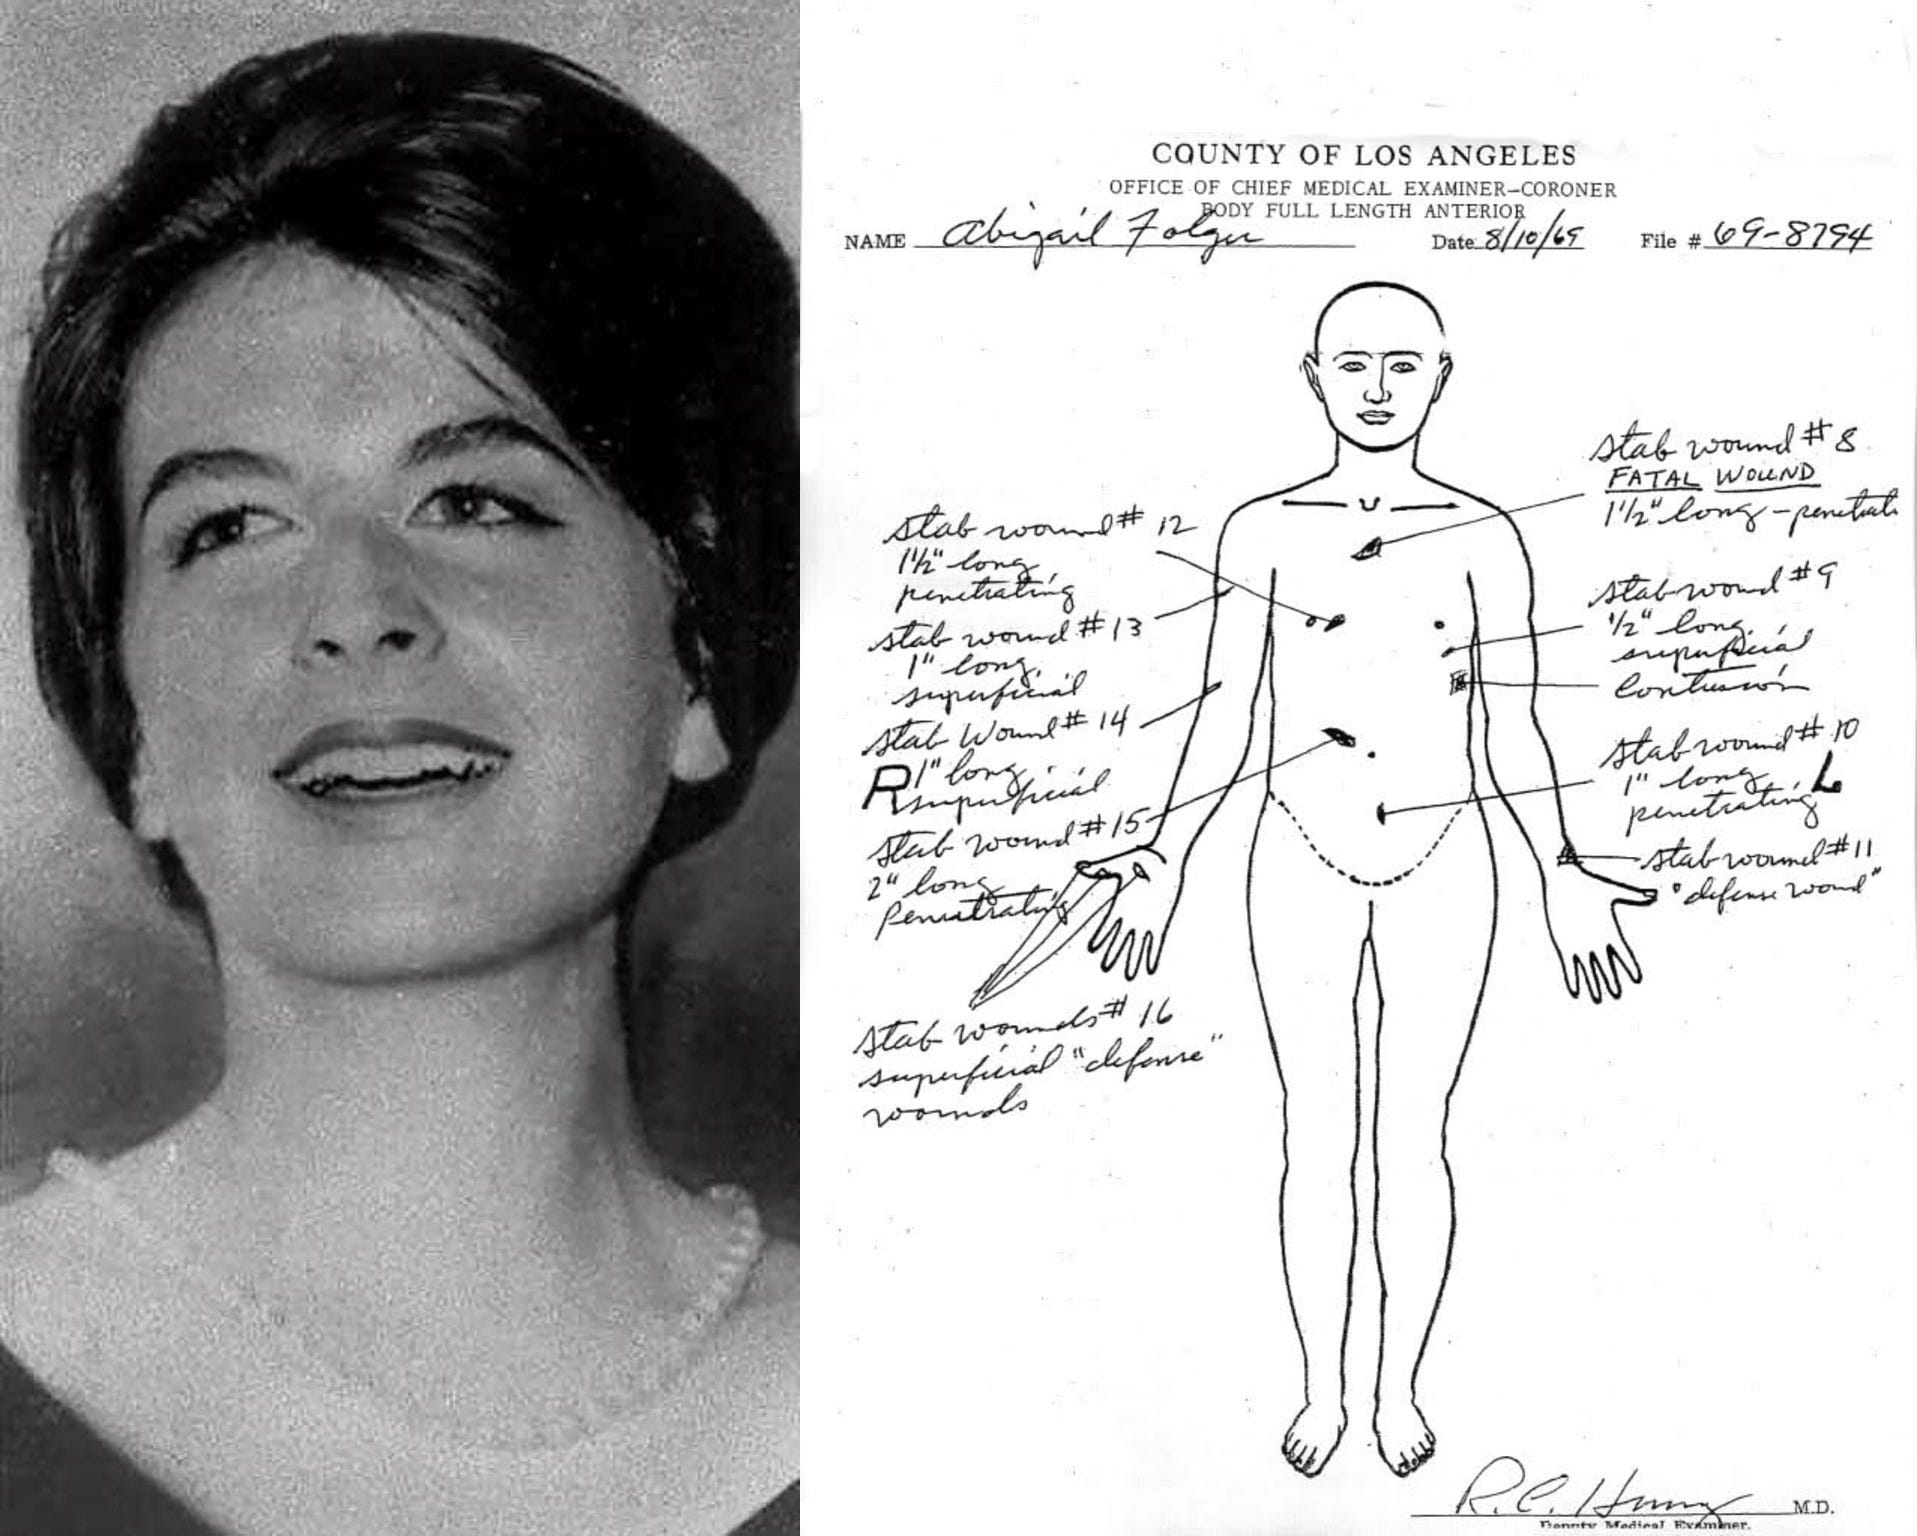 COUNTY OF LOS ANGELES
OFFICE OF CHIEF MEDICAL EXAMINER-CORONER
BODY FULL LENGTH ANTERIOR
NAME Abigail Folger Date 8/10/69 File # 69-8794
stab wound # 8
FATAL WOUND
1 1/2" long - penetrati
stab wound # 12
1 1/2" long
penetrating
stab wound # 9
1/2" long
superficial
Contusion
stab wound # 13
1" long
superficial
stab Wound # 14
R 1" long
superficial
stab wound # 10
1" long L
penetrating
stab wound # 15
2" long
Penetrating
stab wound # 11
"defense wound"
stab wounds # 16
superficial "defense"
wounds
R. C. Henry M.D.
Deputy Medical Examiner.